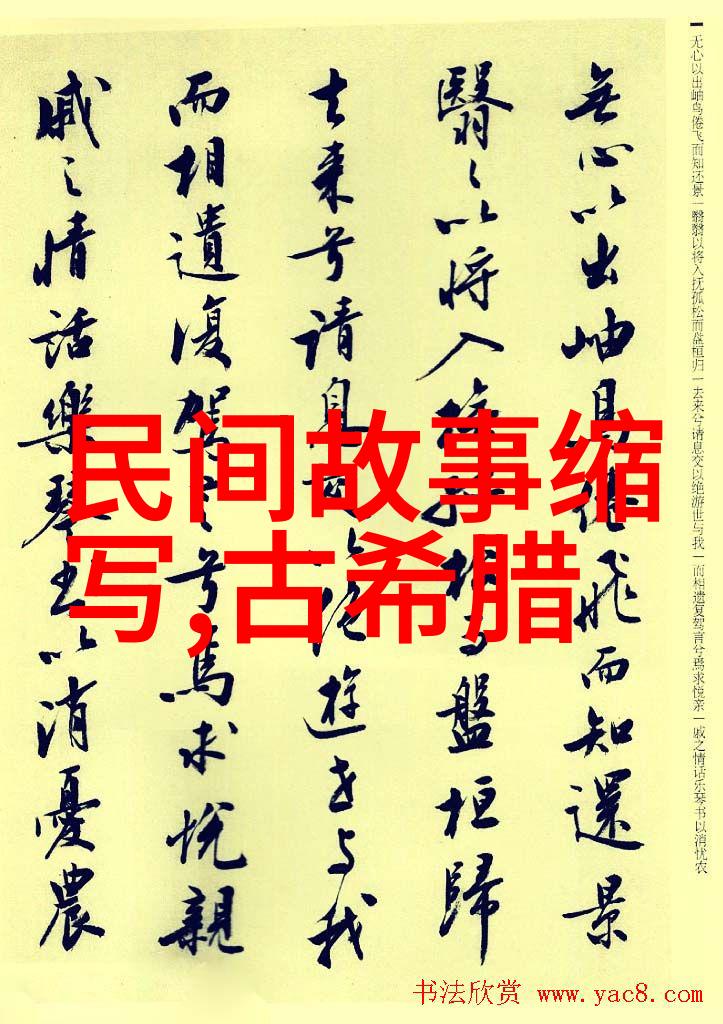 无心以出岫鸟倦飞而知还景一翳翳以将入抚孤松而盘桓归一去来兮请息交以绝游世与我一而相遗复驾言兮焉求悦亲一戚之情话乐琴书以消忧农
無心以出岫鳥倦飛而知還景
翳〻以将入撫孤松而盤桓歸
去来兮請息交以絶遊世与我
而相遺復駕言兮焉求悦親
戚之情話樂琴書以消憂農
民间故事缩
写,古希腊
书法欣赏 www.yac8.com